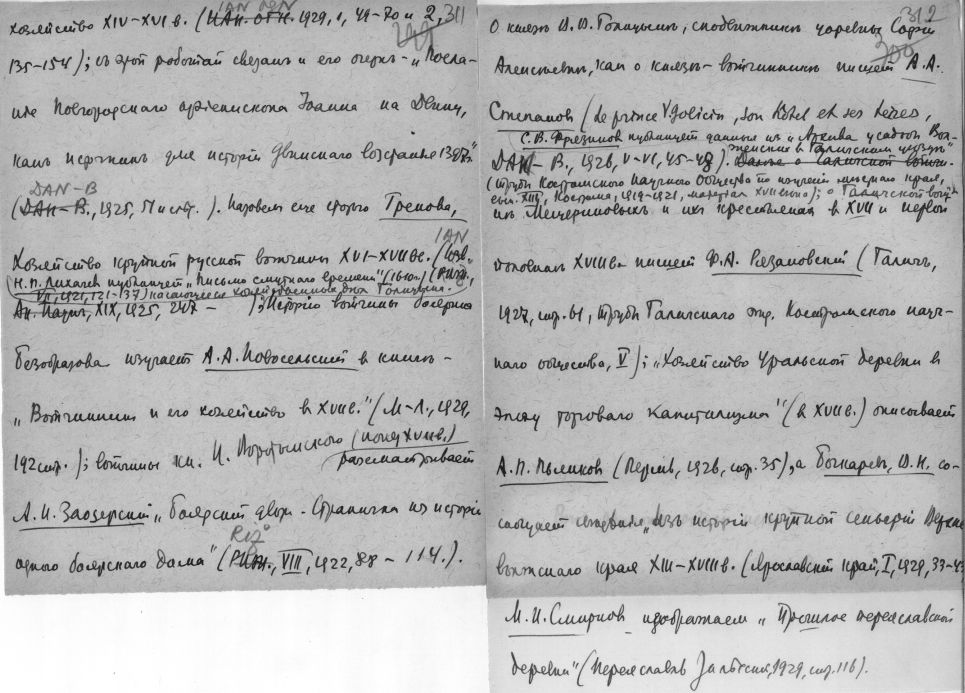 311
IAN OGN
хозяйство XIV–XVI в. (ИАН. ОГН. 1929, 1, 49–70 и 2,
135–154); с этой работой связан и его очерк – „Посла-
ние Новгородского архиепископа Иоанна на Двину,
как источник для истории Двинского восстания 1397г.“
DAN–B
(DAH–B., 1925, 51 и след.). Назовем еще статью Грекова,
IAN
Хозяйство крупной русской вотчины XVI–XVII вв. (Изв.
Н. П. Лихачев публикует „Письмо смутного времени“ (1610г.) (РИЖ.
VII, 1921, 121–137) касающееся хозяйственных дел Голицына.
Ак. Наук, XIX, 1925, 247 –      ); Историю вотчины боярина
Безобразова изучает А. А. Новосельский в книге –
„Вотчинник и его хозяйство в XVII в.“ (М–Л., 1929,
192 стр.); вотчины кн. (конец XVII в.)
рассматривает
А. И. Заозерский „Боярский двор. Страничка из истории
RIŽ
одного боярского дома“ (РИЖ., VIII, 1922, 88 – 114.).
312
300
О князе В. В. Голицыне, сподвижнике царевны Софьи
Алексеевны, как о князе – вотчиннике пишет А. А.
Степанов (Le prince V. Golicin, son hôtel et ses
С. В. Фрязинов публикует данные из „Архива усадьбы
в Галичском уезде“
DAN–B., 1926, V–VI, 45–48). Данные о Галичской вотчи-
(Труды Костромского Научного Общества по изучению местного края,
вып. XIII, Кострома, 1919–1921, материал XVII века); о Галичской вотчи
не Мещериновых и их крестьянах в XVII и первой
половине XVIII в. пишет Ф. А. Рязановский (Галич,
1927, стр. 61, Труды Галичского отд. Костромского науч-
ного общества, V); „Хозяйство Уральской деревни в
эпоху торгового капитализма“ (в XVII в.) описывает
А. П. Пьянков (Пермь, 1926, стр. 35), а Бочкарев, В. Н. со-
общает сведения „Из истории крупной сеньерии Верхне
волжского края XIII–XVIII в. (Ярославский край, I, 1929, 33–43
М. И. Смирнов изображает „Прошлое переяславской
деревни“ (Переяславль Залесский, 1929, стр. 116).